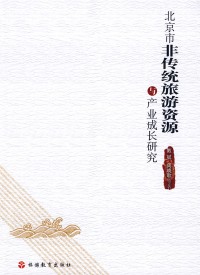 北京市
非传统旅游资源
与产业成长研究
旅游教育出版社